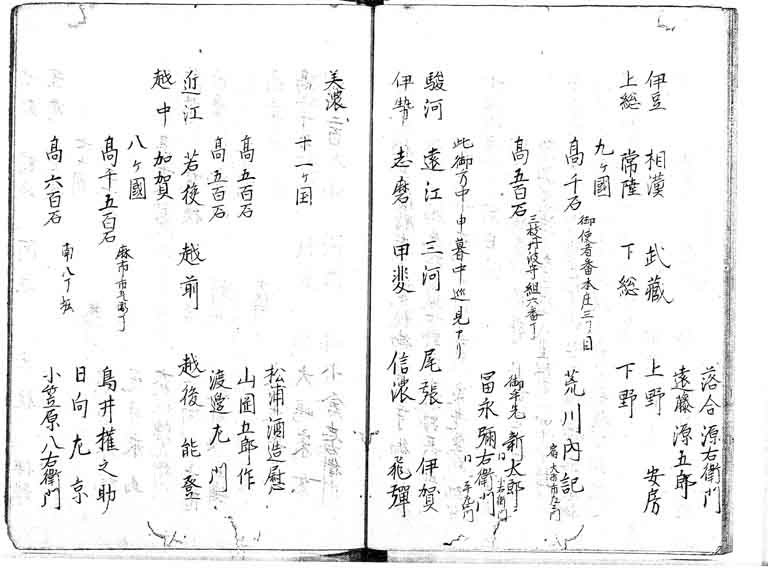 落合源右衛門
遠藤源五郎
伊豆 相漠 武蔵 上野 安房
上総 常陸 下総 下野
九ヶ國
高千石 御使者番本庄三丁目 荒川内記
宿 大
高五百石 三枝丹波守組六番丁 御先 新太郎
冨永彌右衛門
此御方 中申暮中巡見アリ
駿河 遠江 三河 尾張 伊賀
伊勢 志磨 甲斐 信濃 飛弾
美濃
十一ヶ国
高五百石 松浦酒造慰
高五百石 山岡五郎作
渡邉左門
近江 若狭 越前 越後 能登
越中 加賀
八ヶ國
高千五百石 麻布市兵衛丁 鳥井権之助
日向左京
高六百石 南八丁 小笠原八右衛門